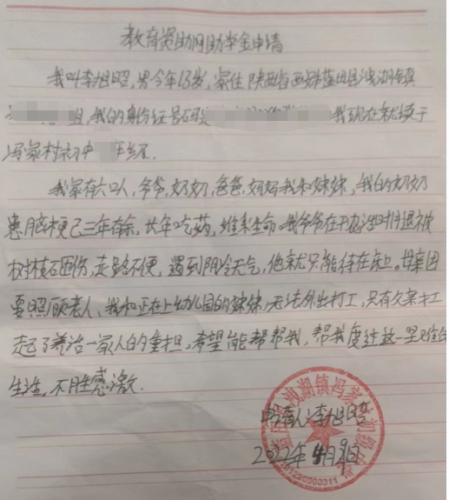 教育资助网助学金申请
我叫李旭昭,男今年13岁,家住陕西省西安蓝田县洩湖镇
组,我的身份证号码 我现在就读于
冯家村初中 年级.
我家有六口人,爷爷,奶奶,爸爸,妈妈我和妹妹,我的奶奶
患脑梗已三年有余,长年吃药,维系生命.我爷爷在干 时 被
树 砸伤,走路不便,遇到阴冷天气,他就只能待在床上.母亲因
要照顾老人,我和正在上幼儿园的妹妹,无法外出打工,只有父亲扛
起了养活一家人的重担,希望能帮帮我,帮我度过这一 难的
生活.不胜感激.
申请人:李旭昭
2022年4月9日
洩湖镇冯家 初级中